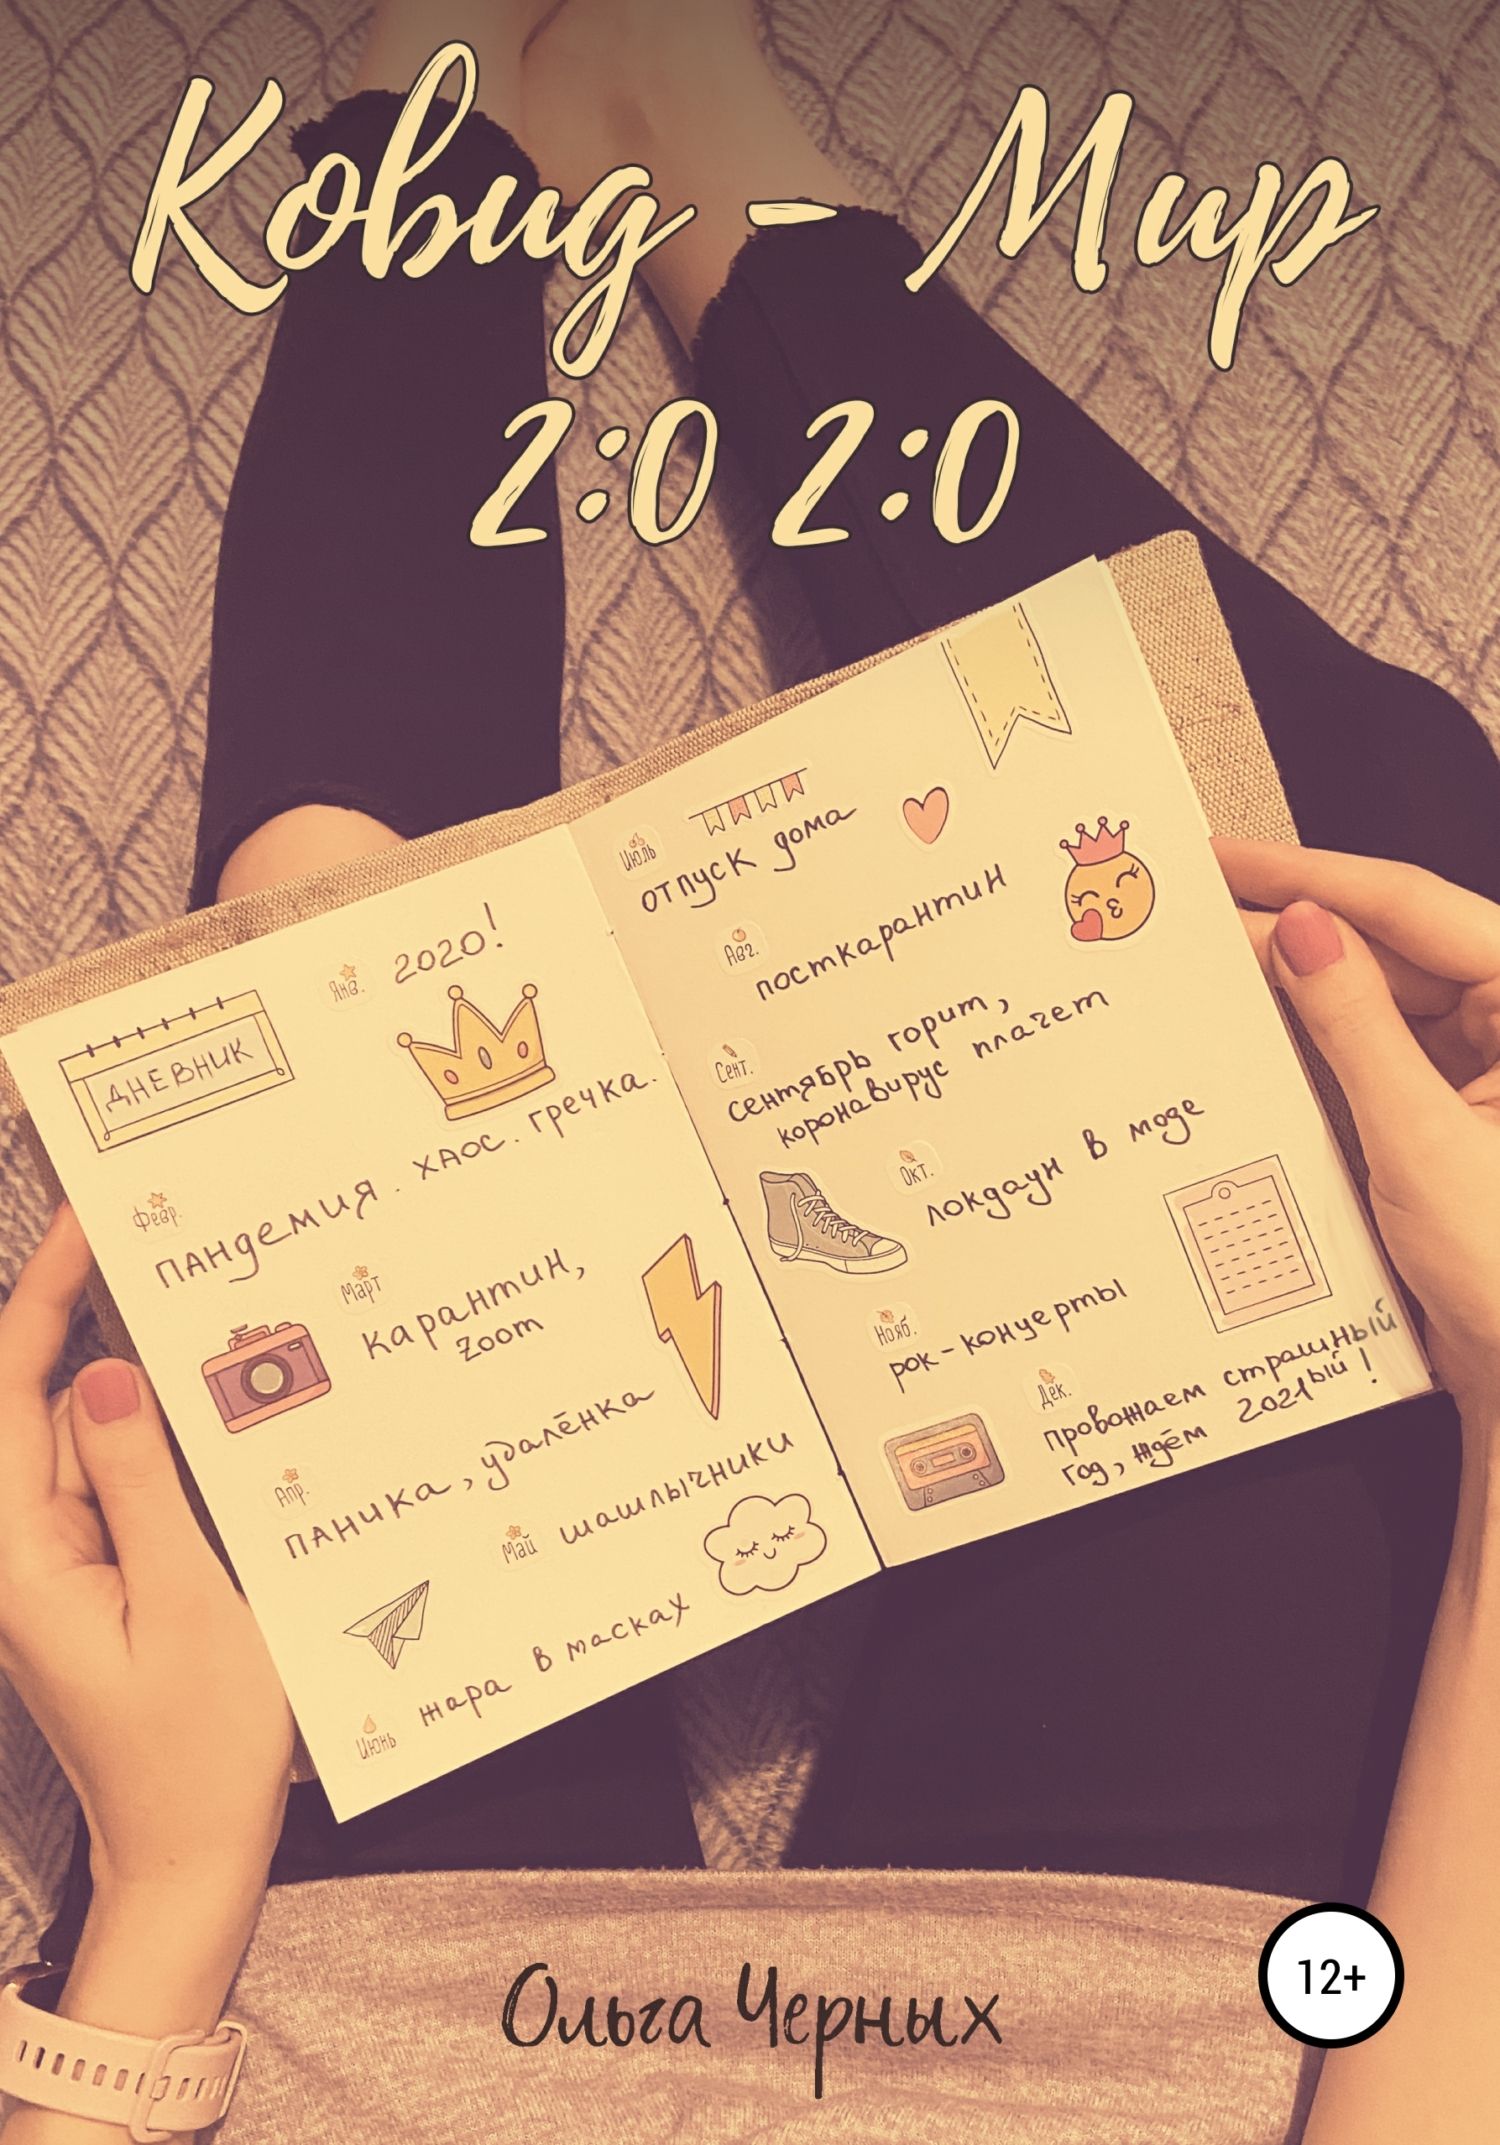 Ковид - Мир
2:0 2:0
ДНЕВНИК
Янв. 2020!
Февр.
пандемия. хаос. гречка.
Март
карантин,
zoom
Апр.
паника, удалёнка
Май шашлычники
Июнь
жара в масках
Июль
отпуск дома
Авг.
посткарантин
Сент.
сентябрь горит,
коронавирус плачет
Окт.
локдаун в моде
Нояб.
рок-концерты
Дек.
провожаем страшный
год, ждём 2021ый!
Ольга Черных
12+